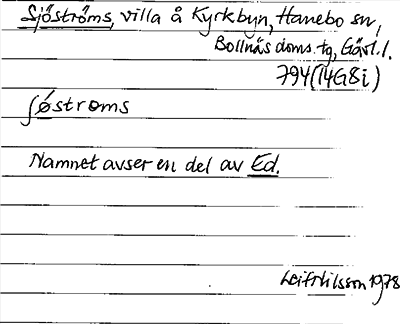 Sjöströms, villa å Kyrkbyn, Hanebo sn,
Bollnäs doms. tg, Gävl. l.
794(14G8i)
ʃøstroms
Namnet avser en del av Ed.
Leif Nilsson 1978